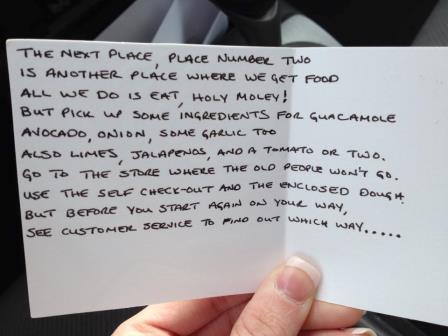 THE NEXT PLACE, PLACE NUMBER TWO
IS ANOTHER PLACE WHERE WE GET FOOD
ALL WE DO IS EAT, HOLY MOLEY!
BUT PICK UP SOME INGREDIENTS FOR GUACAMOLE
AVOCADO, ONION, SOME GARLIC TOO
ALSO LIMES, JALAPENOS, AND A TOMATO OR TWO.
GO TO THE STORE WHERE THE OLD PEOPLE WON'T GO.
USE THE SELF CHECK-OUT AND THE ENCLOSED DOUGH.
BUT BEFORE YOU START AGAIN ON YOUR WAY,
SEE CUSTOMER SERVICE TO FIND OUT WHICH WAY.....